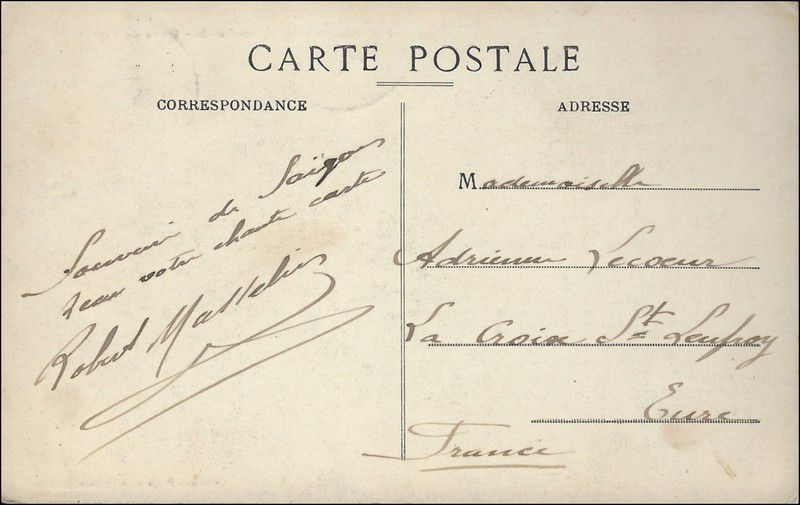 CARTE POSTALE
CORRESPONDANCE
ADRESSE
Souvenir de Saïgon
votre carte
Robert
Mademoiselle
Adrienne Lecoeur
La Croix St Leufroy
Eure
France